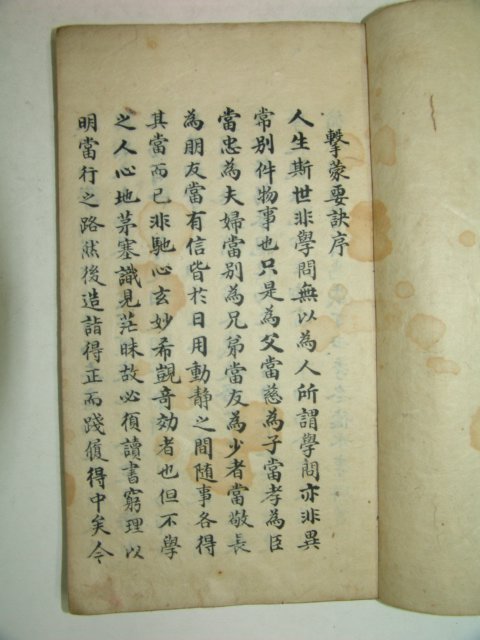 擊蒙要訣序
人生斯世非學問無以為人所謂學問亦非異
常別件物事也只是為父當慈為子當孝為臣
當忠為夫婦當別為兄弟當友為少者當敬長
為朋友當有信皆於日用動靜之間随事各得
其當而已非馳心玄妙希覬奇効者也但不學
之人心地茅塞識見茫昧故必須讀書窮理以
明當行之路然後造詣得正而踐履得中矣今